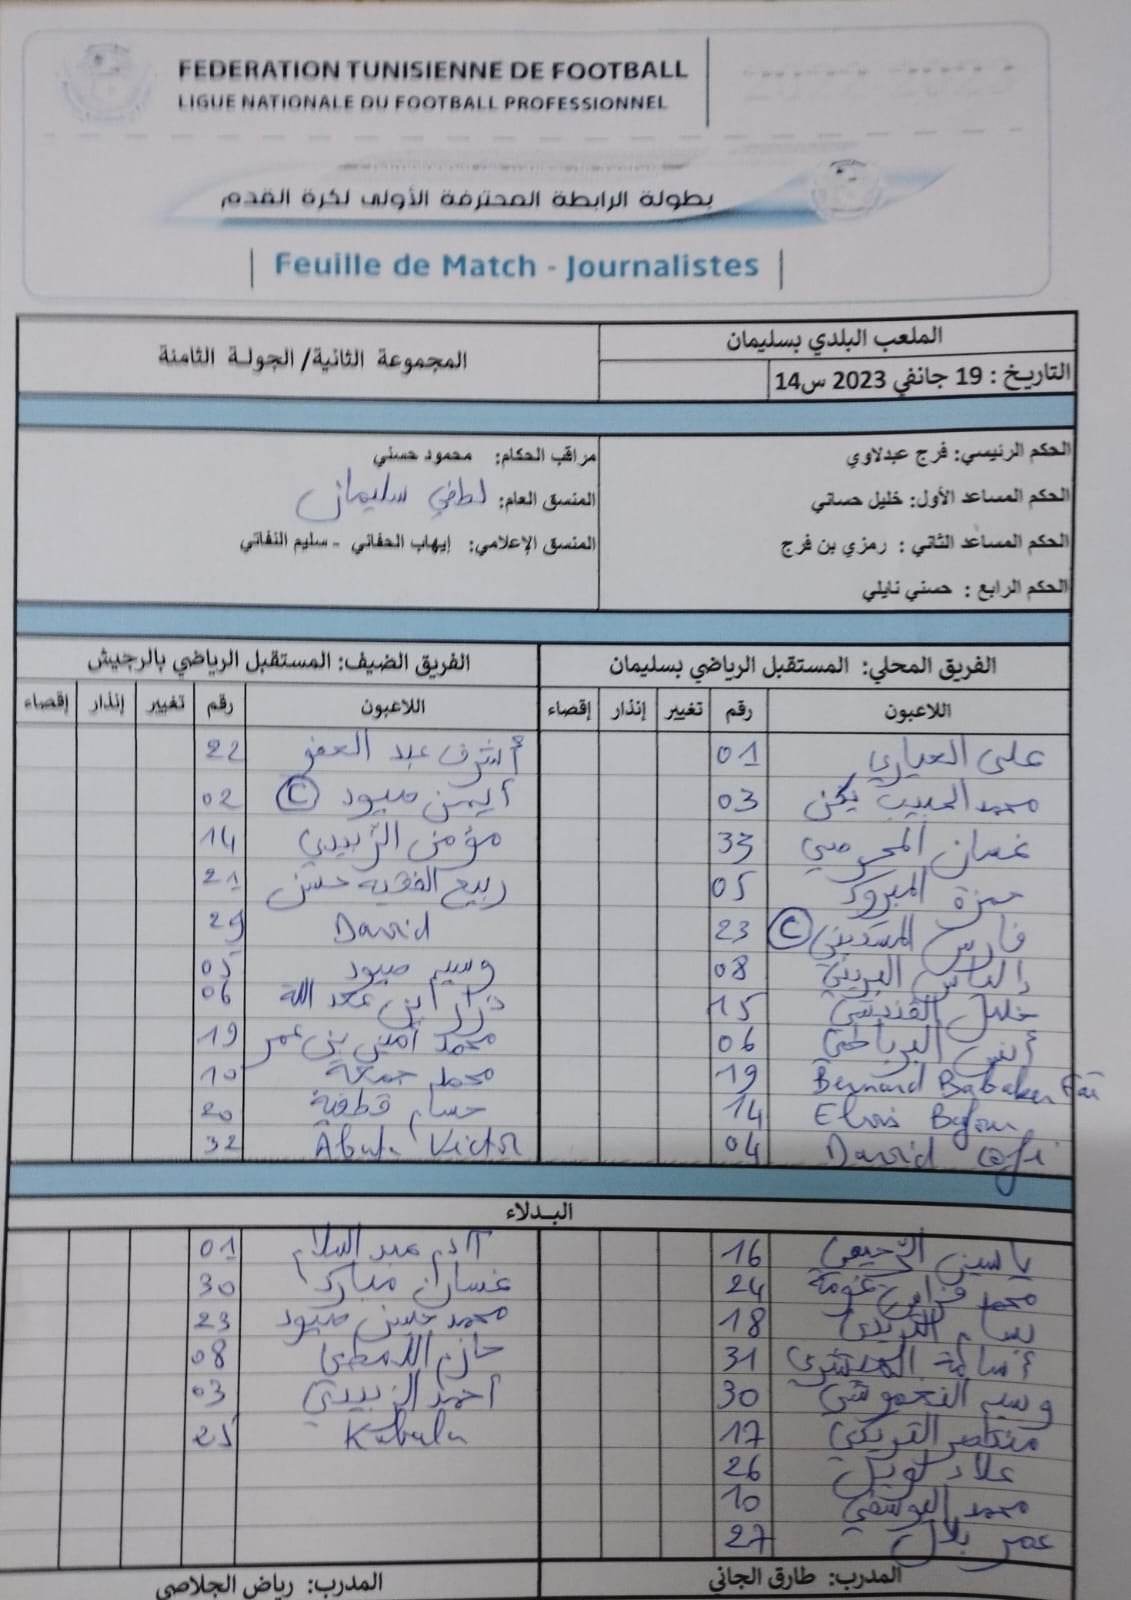 FEDERATION TUNISIENNE DE FOOTBALL
LIGUE NATIONALE DU FOOTBALL PROFESSIONNEL
بطولة الرابطة المحترفة الأولى لكرة القدم
Feuille de Match - Journalistes
الملعب البلدي بسليمان
المجموعة الثانية/ الجولة الثامنة
التاريخ : 19 جانفي 2023 س14
الحكم الرئيسي: فرج عبدلاوي
مراقب الحكام: محمود حسني
الحكم المساعد الأول: خليل حساني
المنسق العام: لطفي سليمان
الحكم المساعد الثاني : رمزي بن فرج
المنسق الإعلامي: إيهاب الحفاني - سليم النفاتي
الحكم الرابع : حسني نايلي
الفريق المحلي: المستقبل الرياضي بسليمان
الفريق الضيف: المستقبل الرياضي بالرجيش
اللاعبون رقم تغيير إنذار إقصاء
اللاعبون رقم تغيير إنذار إقصاء
علي العياري 01
أشرف عبد العفو 22
محمد الحبيب يكن 03
أيمن ميود C 02
غسان المحرصي 33
مؤمن الزبيدي 14
حمزة المبروك 05
ربيع الفقيه حسن 21
فارس المسكيني C 23
David 29
إلياس 08
وسيم ميود 05
خليل 15
نزار ابن عبد الله 06
أنس 06
محمد أمين بن عمر 19
Bernard Babaker 19
محمد جمعة 10
Elvis 14
حسام قطفية 20
David 04
Victor 32
البدلاء
ياسين الرحيمي 16
آدم عبد السلام 01
محمد فراس عثومة 24
غسان مبارك 30
بسام 18
محمد حسن ميود 23
أسامة 31
08
وسيم النغموشي 30
أحمد الزبيدي 03
منتصر التريكي 17
Kabula 25
علاء 26
محمد اليوسفي 10
عمر بلال 27
المدرب: طارق الجاني
المدرب: رياض الجلاصي